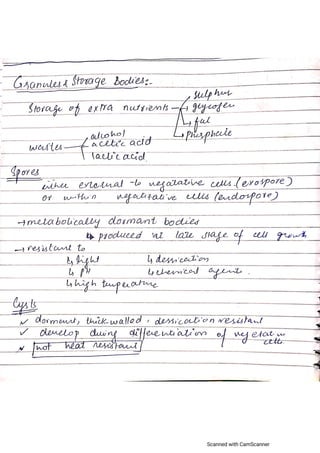 Granules & Storage Bodies:-
sulphur
Storage of extra nutrients glycogen
fat
phosphate
alcohol
wastes acetic acid
lactic acid
Spores
either external to vegatative cells (exospore)
or within vegatitative cells (endospore)
→ metabolically dormant bodies
↳ produced at late stage of cell growth
→ resistant to
↳ light ↳ dessication
↳ pH ↳ chemical agents.
↳ high tempeature
Cysts
✓ dormant, thick walled, dessication resistant
✓ develop during differentiation of vegetative cells
✓ not heat resistant
Scanned with CamScanner